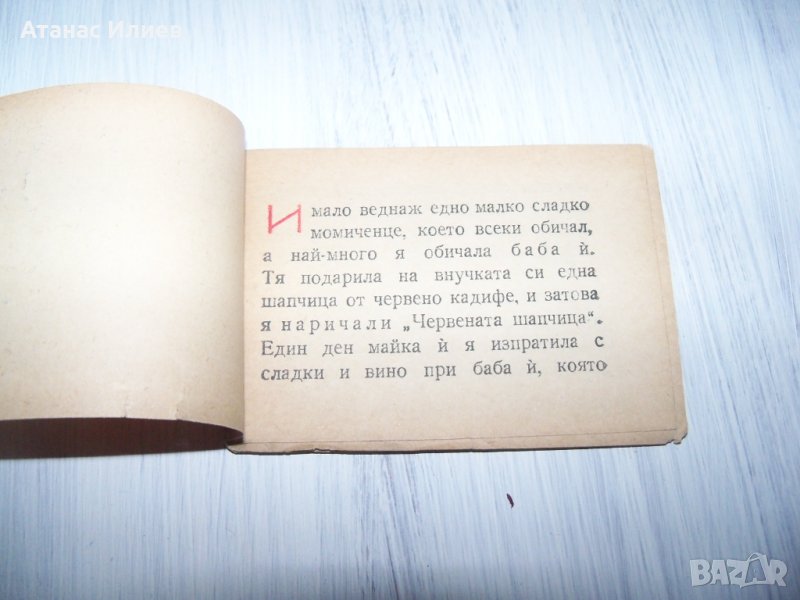 Атанас Илиев
Имало веднаж едно малко сладко
момиченце, което всеки обичал,
а най-много я обичала баба ѝ.
Тя подарила на внучката си една
шапчица от червено кадифе, и затова
я наричали „Червената шапчица“.
Един ден майка ѝ я изпратила с
сладки и вино при баба ѝ, която
BAZAR